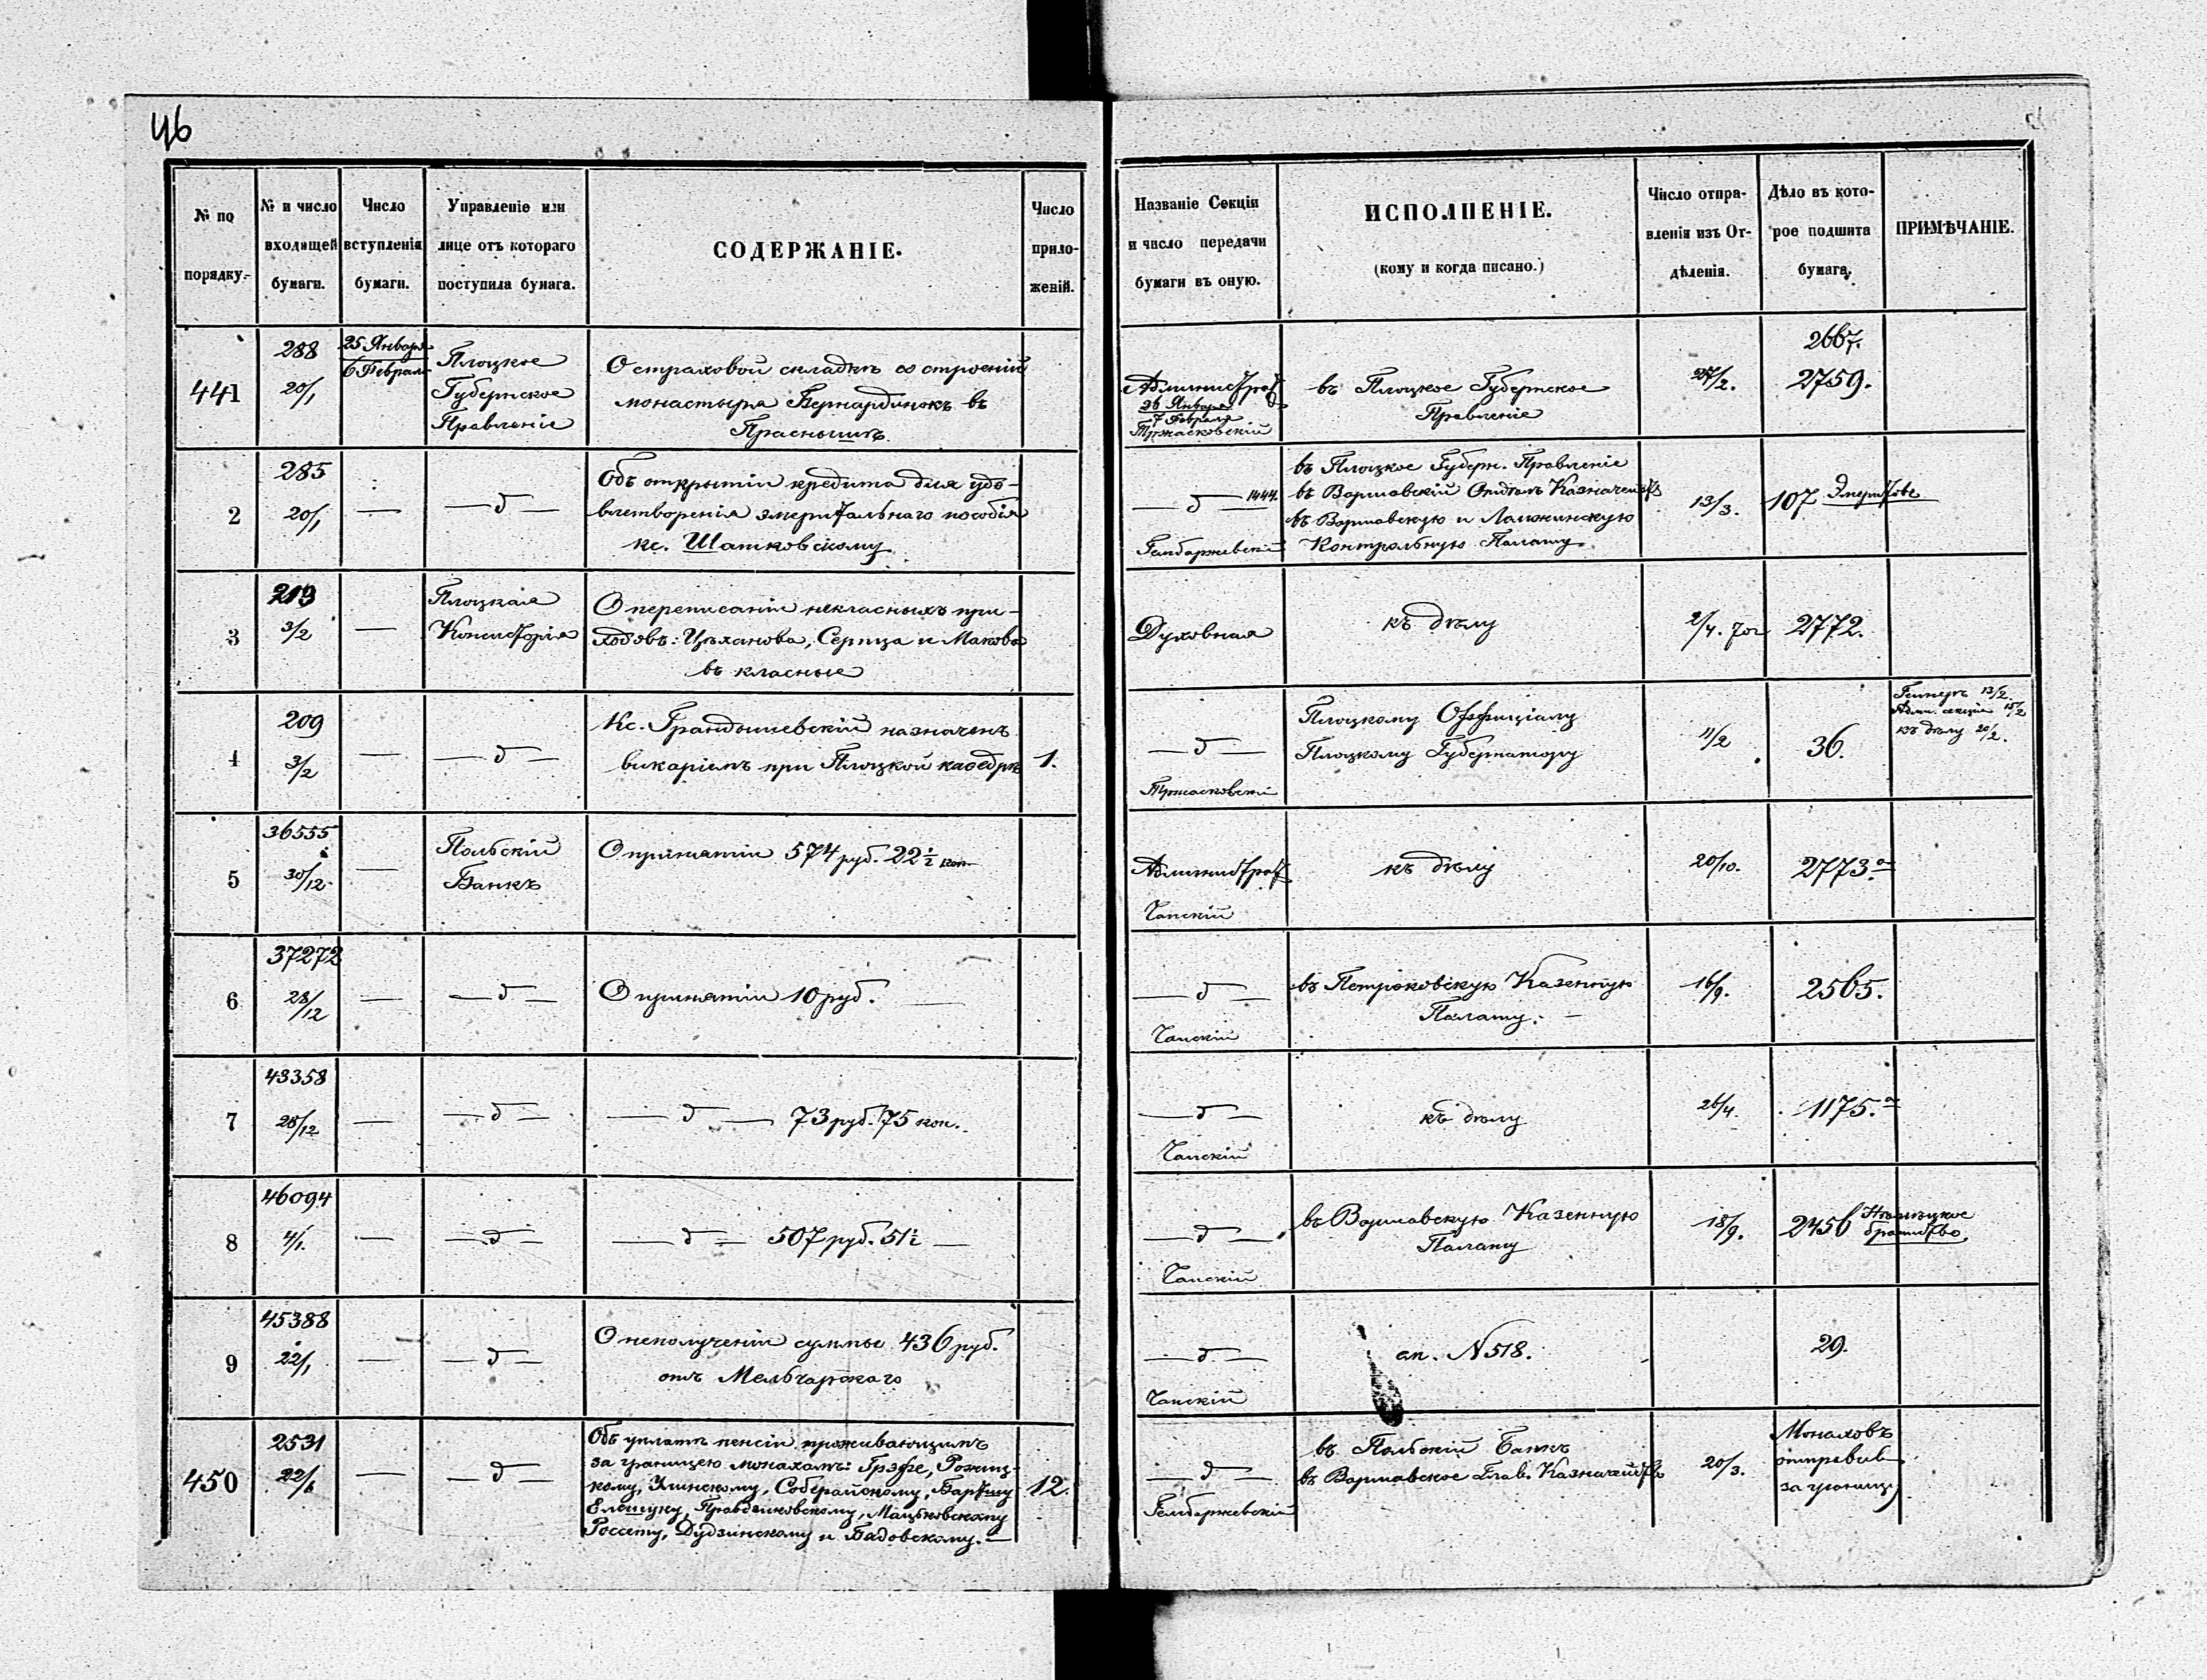 46
№ по порядку.
№ и число входящей бумаги.
Число вступленія бумаги.
Управленіе или лице отъ котораго поступила бумага.
СОДЕРЖАНІЕ.
Число приложеній.
Названіе Секціи и число передачи бумаги въ оную.
ИСПОЛНЕНІЕ.
(кому и когда писано.)
Число отправленія изъ Отдѣленія.
Дѣло въ которое подшита бумага.
ПРИМѢЧАНІЕ.
441
288
20/1
25 Января
6 Февраля
Плоцкое
Губернское
Правленіе
О страховой складкѣ со строеній
монастыря Бернардинокъ въ
Праснышѣ
Администрат
26 Января
7 Февраля
Тржасковскій
въ Плоцкое Губернское
Правленіе
27/2.
2667.
2759.
2
285
20/1
—
— д —
Объ открытіи кредита для удо-
влетворенія эмеритальнаго пособія
кс. Шатковскому.
— д — 1444.
Гембаржевскій
въ Плоцкое Губерн. Правленіе
въ Варшавскій Отдѣлъ Казначейств
въ Варшавскую и Ломжинскую
Контрольную Палату.
13/3.
107
3
219
3/2
—
Плоцкая
Консисторія
О переписаніи некласныхъ при-
ходовъ: Цѣханова, Серпца и Макова
въ класные
Духовная
къ дѣлу
2/4. 70г
2772.
4
209
3/2
—
— д —
Кс. Грандышевскій назначенъ
викаріемъ при Плоцкой каѳедрѣ
1.
— д —
Тржасковскій
Плоцкому Оффиціалу
Плоцкому Губернатору
11/2
36.
13/2
Адм. секціи 15/2
къ дѣлу 20/2.
5
36555
30/12.
—
Польскій
Банкъ
О принятіи 574 руб. 22½ коп.
Администрат
Чапскій
къ дѣлу
20/10.
2773.а
6
37272
28/12
—
— д —
О принятіи 10 руб. —
— д —
Чапскій
въ Петроковскую Казенную
Палату. —
16/9.
2565.
7
43358
28/12
—
— д —
— д — 73 руб. 75 коп.
— д —
Чапскій
къ дѣлу
26/4.
1175.а
8
46094
4/1.
—
— д —
— д — 507 руб. 51½ —
— д —
Чапскій
въ Варшавскую Казенную
Палату
18/9.
2456 Нѣмецкое
братство.
9
45388
22/1
—
— д —
О неполученіи суммы 436 руб.
отъ Мельчарскаго
— д —
Чапскій
ап. N 518.
29.
450
2531
22/1
—
— д —
Объ уплатѣ пенсіи проживающимъ
за границею монахамъ: Грэфе, Рожиц-
кому, Улинскому, Соберайскому,
Правдзиковскому, Мацѣковскому
Россету, Дудзинскому и Бадовскому. —
12.
— д —
Гембаржевскій
въ Польскій Банкъ
въ Варшавское Глав. Казначейство
20/3.
Монаховъ
отправив
за границу